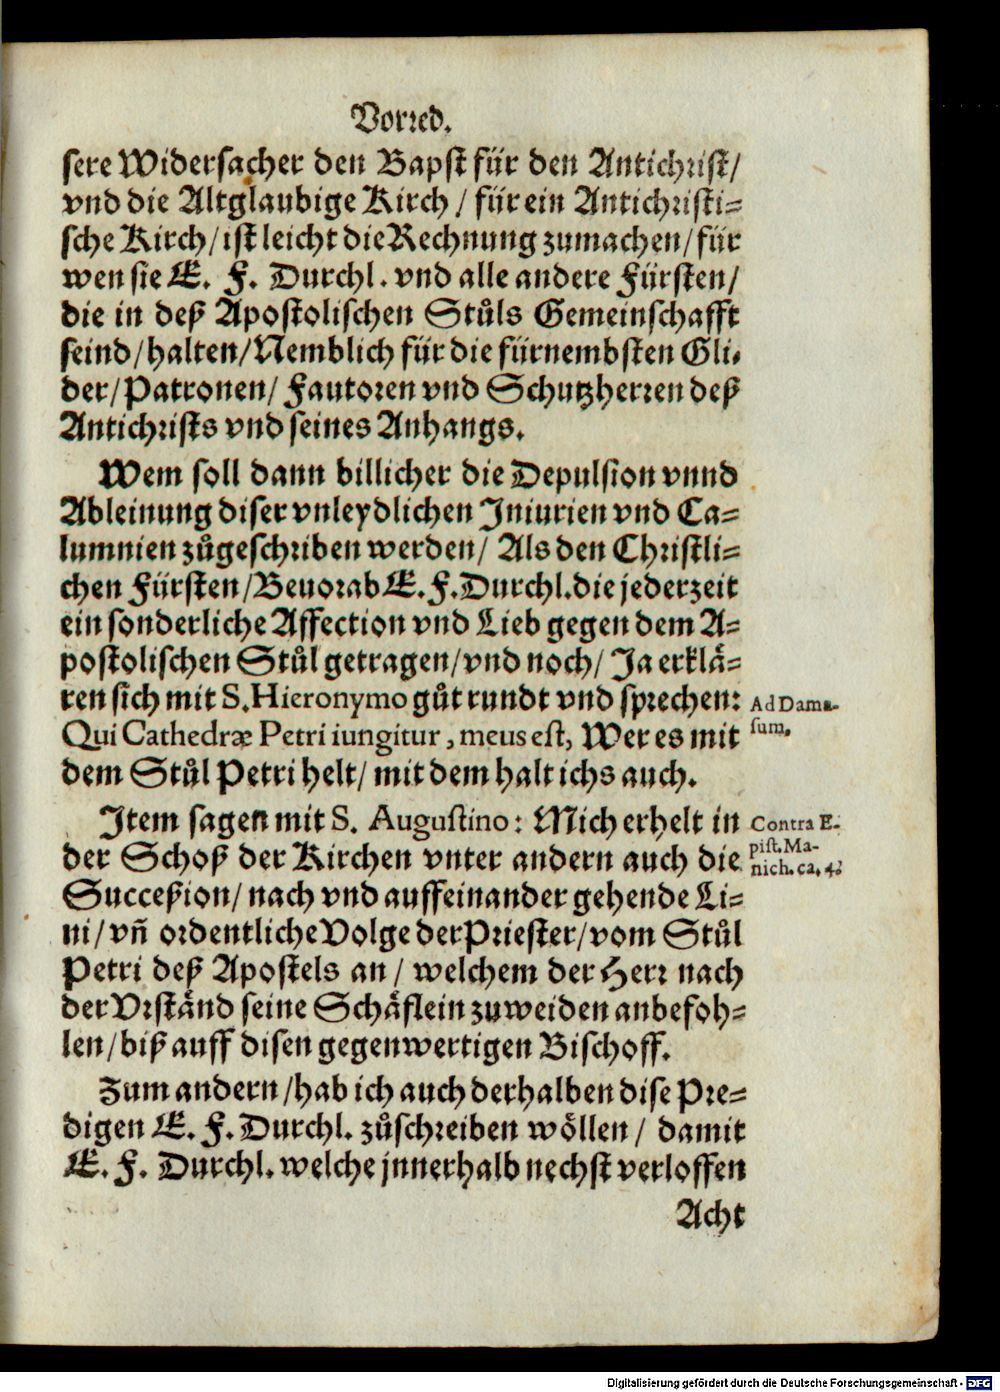 Vorred.
sere Widersacher den Bapst für den Antichrist/
vnd die Altglaubige Kirch / für ein Antichristi=
sche Kirch/ist leicht die Rechnung zumachen/für
wen sie E. F. Durchl. vnd alle andere Fürsten/
die in deß Apostolischen Stůls Gemeinschafft
seind/halten/Nemblich für die fürnembsten Gli=
der/Patronen/ Fautoren vnd Schutzherren deß
Antichrists vnd seines Anhangs.
Wem soll dann billicher die Depulsion vnnd
Ableinung diser vnleydlichen Iniurien vnd Ca=
lumnien zůgeschriben werden/ Als den Christli=
chen Fürsten/Beuorab E.F.Durchl.die jederzeit
ein sonderliche Affection vnd Lieb gegen dem A=
postolischen Stůl getragen/vnd noch/ Ja erklä=
ren sich mit S.Hieronymo gůt rundt vnd sprechen:
Ad Dama-
sum.
Qui Cathedræ Petri iungitur, meus est, Wer es mit
dem Stůl Petri helt/ mit dem halt ichs auch.
Item sagen mit S. Augustino: Mich erhelt in
Contra E-
pist. Ma-
nich. ca. 4.
der Schoß der Kirchen vnter andern auch die
Succeßion/ nach vnd auffeinander gehende Li=
ni/ vñ ordentliche Volge der Priester/vom Stůl
Petri deß Apostels an / welchem der Herr nach
der Vrständ seine Schäflein zuweiden anbefoh=
len/biß auff disen gegenwertigen Bischoff.
Zum andern /hab ich auch derhalben dise Pre=
digen E. F. Durchl. zůschreiben wöllen / damit
E. F. Durchl. welche jnnerhalb nechst verloffen
Acht
Digitalisierung gefördert durch die Deutsche Forschungsgemeinschaft - DFG